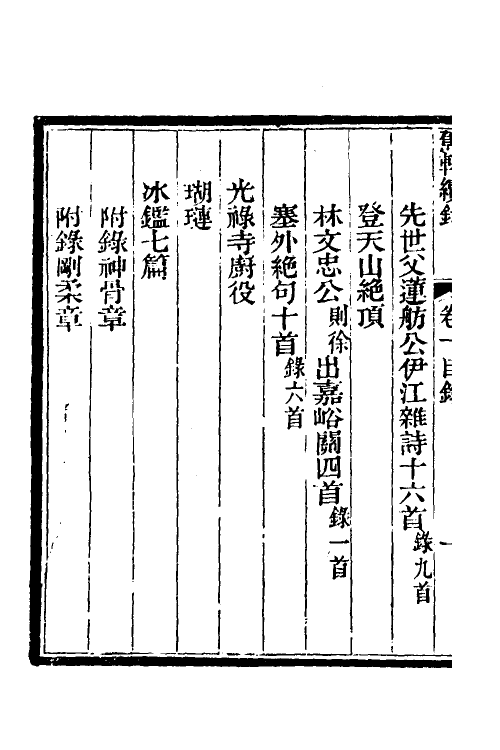 卷一目錄
一
先世父蓮舫公伊江雜詩十六首錄九首
登天山絕頂
林文忠公則徐出嘉峪關四首錄一首
塞外絕句十首錄六首
光祿寺廚役
瑚璉
冰鑑七篇
附錄神骨章
附錄剛柔章